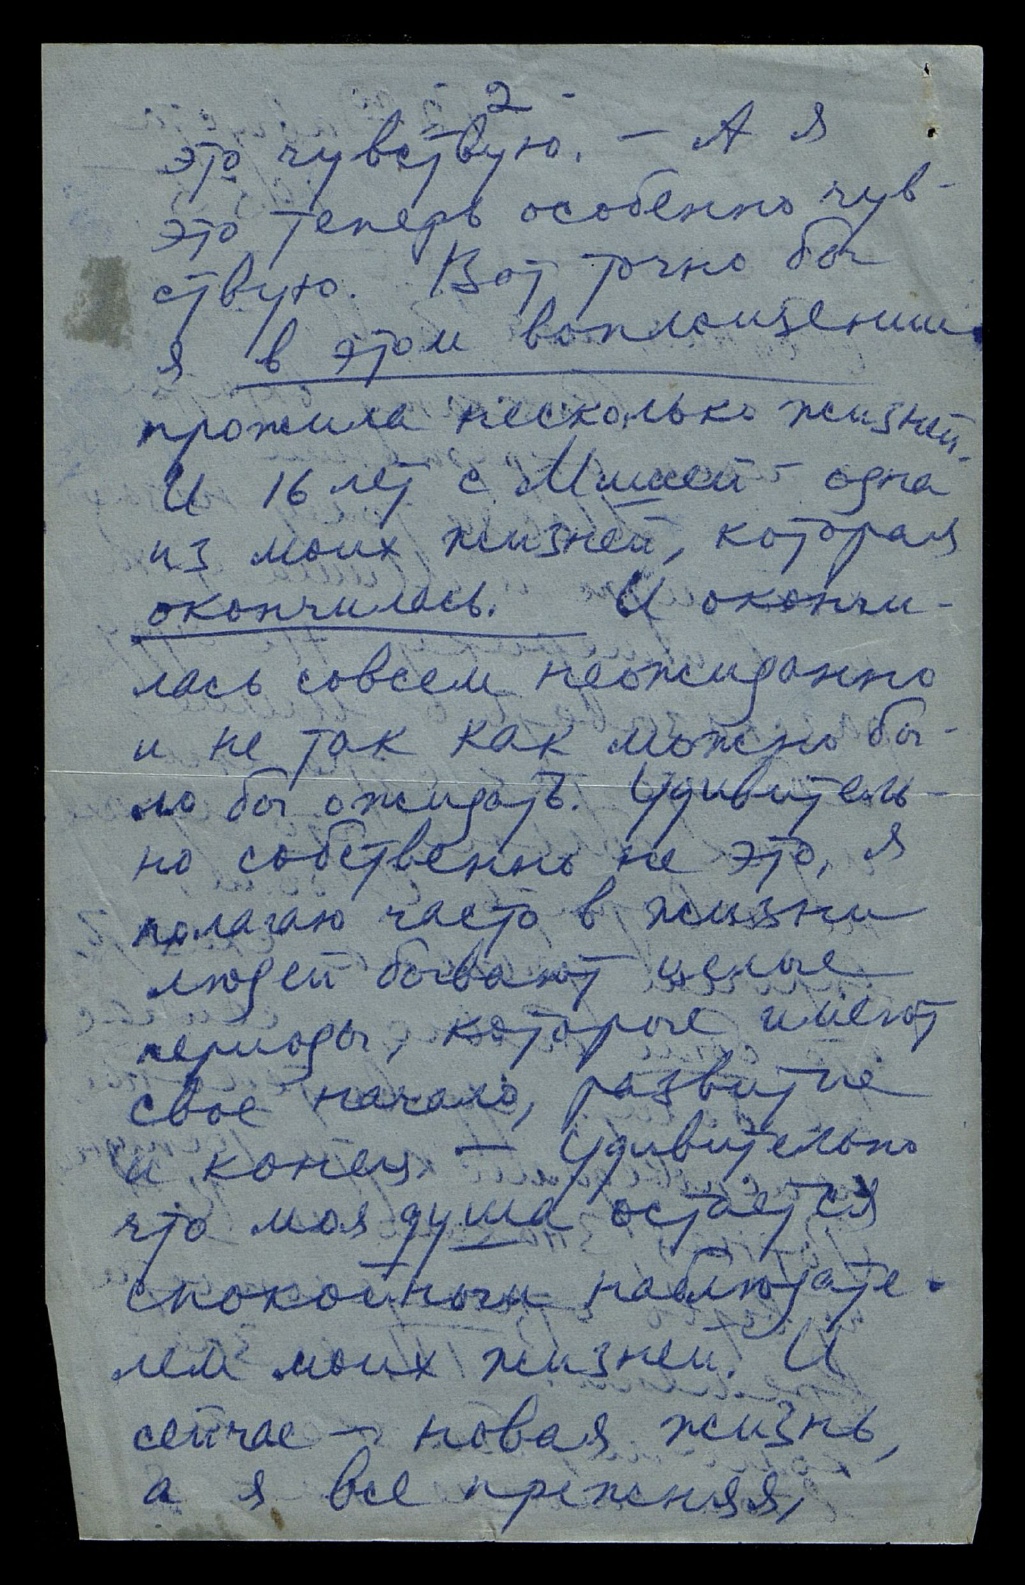 - 2 -
это чувствую. — А я
это теперь особенно чув-
ствую. Вот точно бы
я в этом воплощении
прожила несколько жизней.
И 16 лет с Мишей — одна
из моих жизней, которая
окончилась. И окончи-
лась совсем неожиданно
и не так как можно бы-
ло бы ожидать. Удивитель-
но собственно не это, я
полагаю часто в жизни
людей бывают целые
периоды, которые имеют
свое начало, развитие
и конец — Удивительно
что моя душа остается
спокойным наблюдате-
лем моих жизней. И
сейчас — новая жизнь,
а я все прежняя,